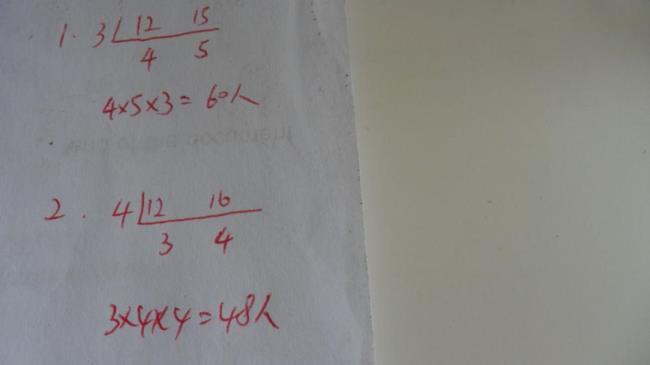 1. 3 12 15
4 5
4×5×3=60人
2. 4 12 16
3 4
3×4×4=48人